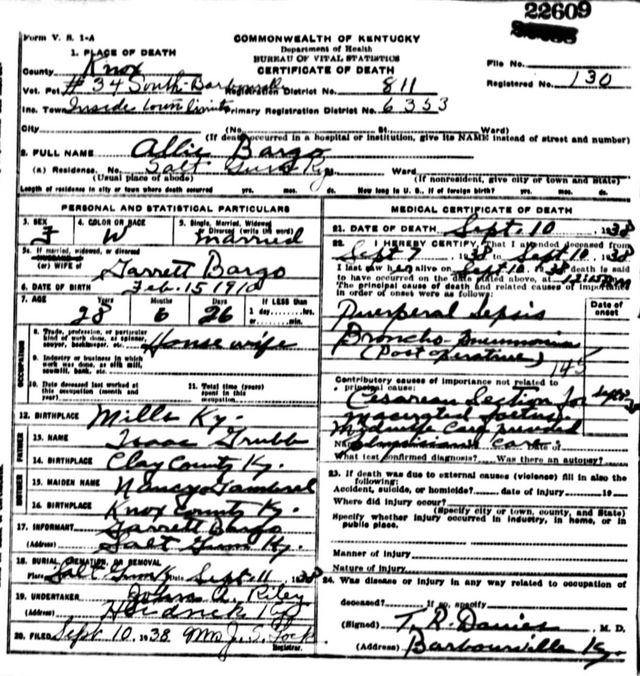 22609
Form V. S. 1-A
COMMONWEALTH OF KENTUCKY
Department of Health
BUREAU OF VITAL STATISTICS
CERTIFICATE OF DEATH
1. PLACE OF DEATH
County Knox
File No.
Registered No. 130
Vot. Pct #34 South Barbourville Registration District No. 811
Inc. Town Inside town limits Primary Registration District No. 6353
City (No. St. Ward)
(If death occurred in a hospital or institution, give its NAME instead of street and number)
2. FULL NAME Allie Bargo
(a) Residence. No. Salt Gum Ky. Ward
(Usual place of abode) (If nonresident, give city or town and State)
Length of residence in city or town where death occurred yrs. mos. ds. How long in U. S., if of foreign birth? yrs. mos. ds.
PERSONAL AND STATISTICAL PARTICULARS
3. SEX F
4. COLOR OR RACE W
5. Single, Married, Widowed, Divorced (write the word) Married
5a. If married, widowed, or divorced
(or) WIFE of Garrett Bargo
6. DATE OF BIRTH Feb. 15 1910
7. AGE Years 28 Months 6 Days 26 If LESS than 1 day, hrs. or min.
OCCUPATION
8. Trade, profession, or particular kind of work done, as spinner, sawyer, bookkeeper, etc. House wife
9. Industry or business in which work was done, as silk mill, sawmill, bank, etc.
10. Date deceased last worked at this occupation (month and year)
11. Total time (years) spent in this occupation.
12. BIRTHPLACE Mills Ky.
FATHER
13. NAME Isaac Grubb
14. BIRTHPLACE Clay County Ky.
MOTHER
15. MAIDEN NAME Nancy Gambrel
16. BIRTHPLACE Knox County Ky.
17. INFORMANT Garrett Bargo
(Address) Salt Gum Ky.
18. BURIAL, CREMATION, OR REMOVAL
Place Salt Gum Ky Date Sept. 11 1938
19. UNDERTAKER Johns A. Riley
(Address) Heidrick Ky
20. FILED Sept 10, 1938 Mrs J. S. Lock
Registrar.
MEDICAL CERTIFICATE OF DEATH
21. DATE OF DEATH Sept. 10, 1938
22. I HEREBY CERTIFY, That I attended deceased from
Sept 7 1938 to Sept 10, 1938
I last saw her alive on Sept 10, 1938 death is said
to have occurred on the date stated above, at
The principal cause of death and related causes of importance in order of onset were as follows:
Date of onset
Puerperal Sepsis
Broncho-pneumonia
(Post operative) 145
Contributory causes of importance not related to principal cause:
Cesarean Section for
macerated foetus.
Midwife Care preceded
physicians Care.
Name of operation Date of
What test confirmed diagnosis? Was there an autopsy?
23. If death was due to external causes (violence) fill in also the following:
Accident, suicide, or homicide? date of injury 19
Where did injury occur?
(Specify city or town, county, and State)
Specify whether injury occurred in industry, in home, or in public place.
Manner of injury
Nature of injury
24. Was disease or injury in any way related to occupation of
deceased? If so, specify
(Signed) T. R. Davies M. D.
(Address) Barbourville Ky.